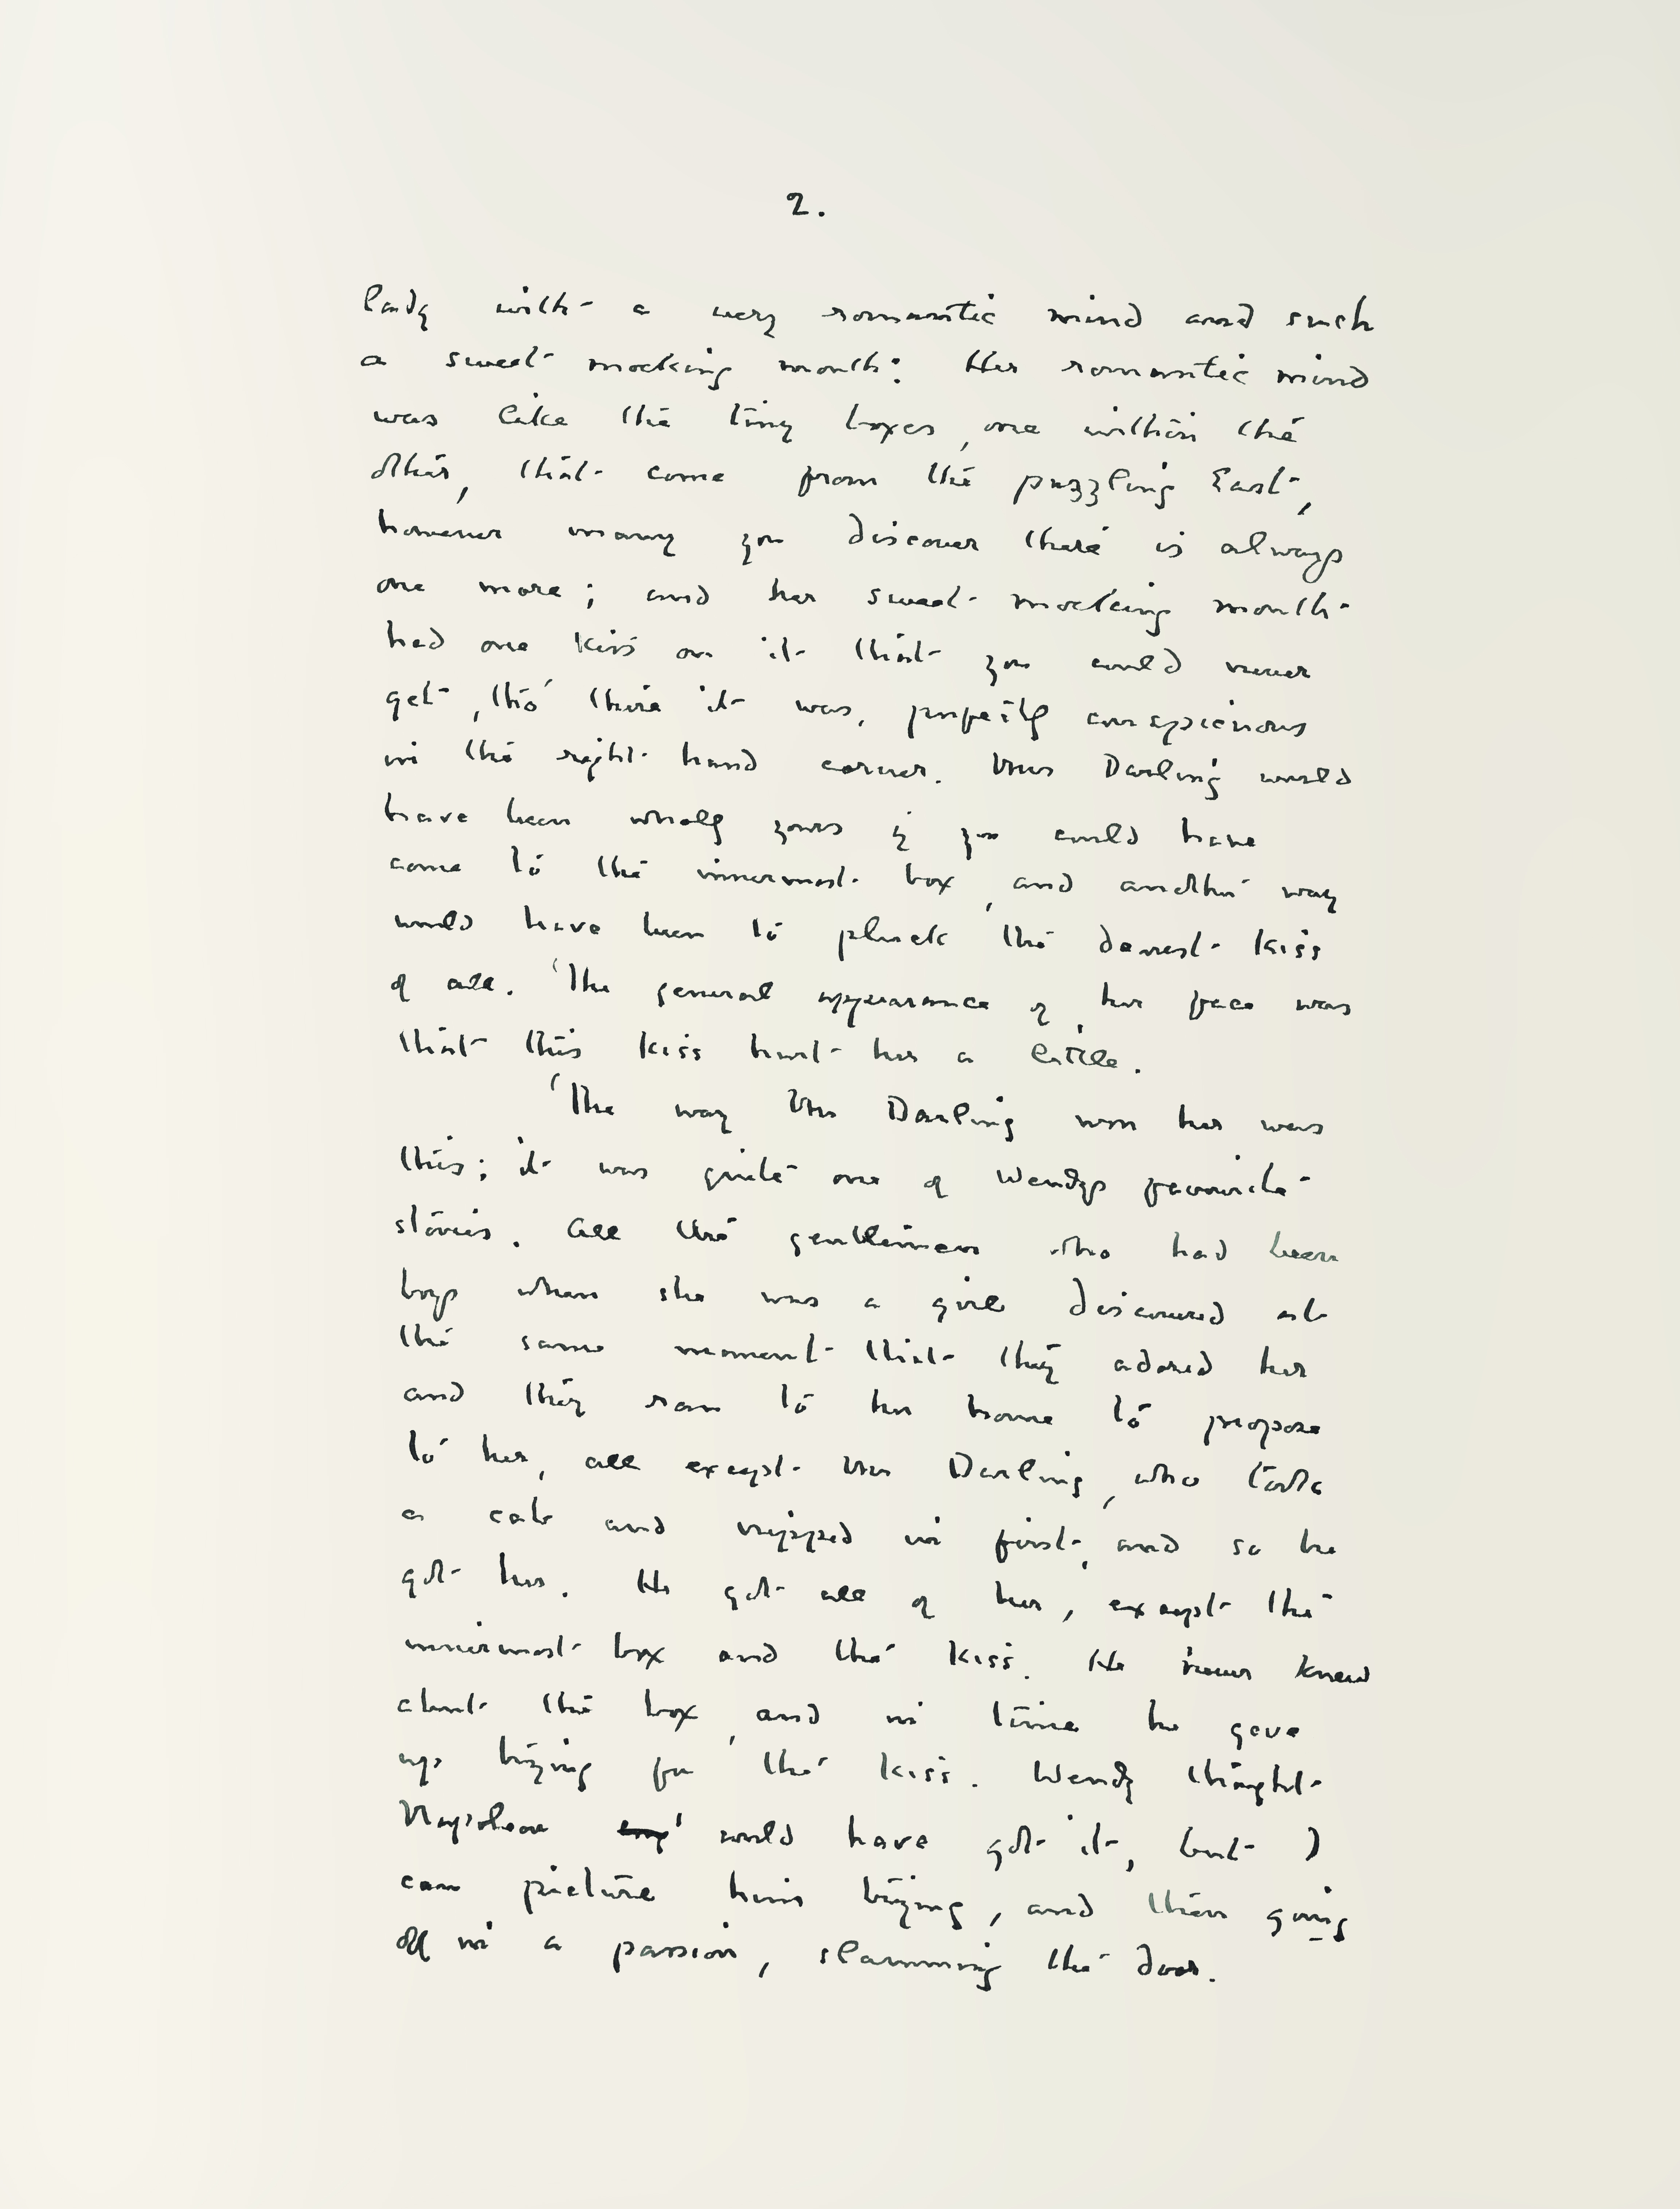 2.
lady with a very romantic mind and such
a sweet mocking mouth: Her romantic mind
was like the tiny boxes, one within the
other, that come from the puzzling East,
however many you discover there is always
one more; and her sweet mocking mouth
had one kiss on it that you could never
get, tho' there it was, perfectly conspicuous
in the right hand corner. Mrs Darling would
have been wholly yours if you could have
come to the innermost box, and another way
would have been to pluck the dearest kiss
of all. The general appearance of her face was
that this kiss hurt her a little.
The way Mr Darling won her was
this; it was quite one of Wendys favourite
stories. All the gentlemen who had been
boys when she was a girl discovered at
the same moment that they adored her
and they ran to her home to propose
to her, all except Mr Darling, who took
a cab and nipped in first, and so he
got her. He got all of her, except the
innermost box and the kiss. He never knew
about the box, and in time he gave
up trying for the kiss. Wendy thought
Napoleon would have got it, but I
can picture him trying, and then going
off in a passion, slamming the door.